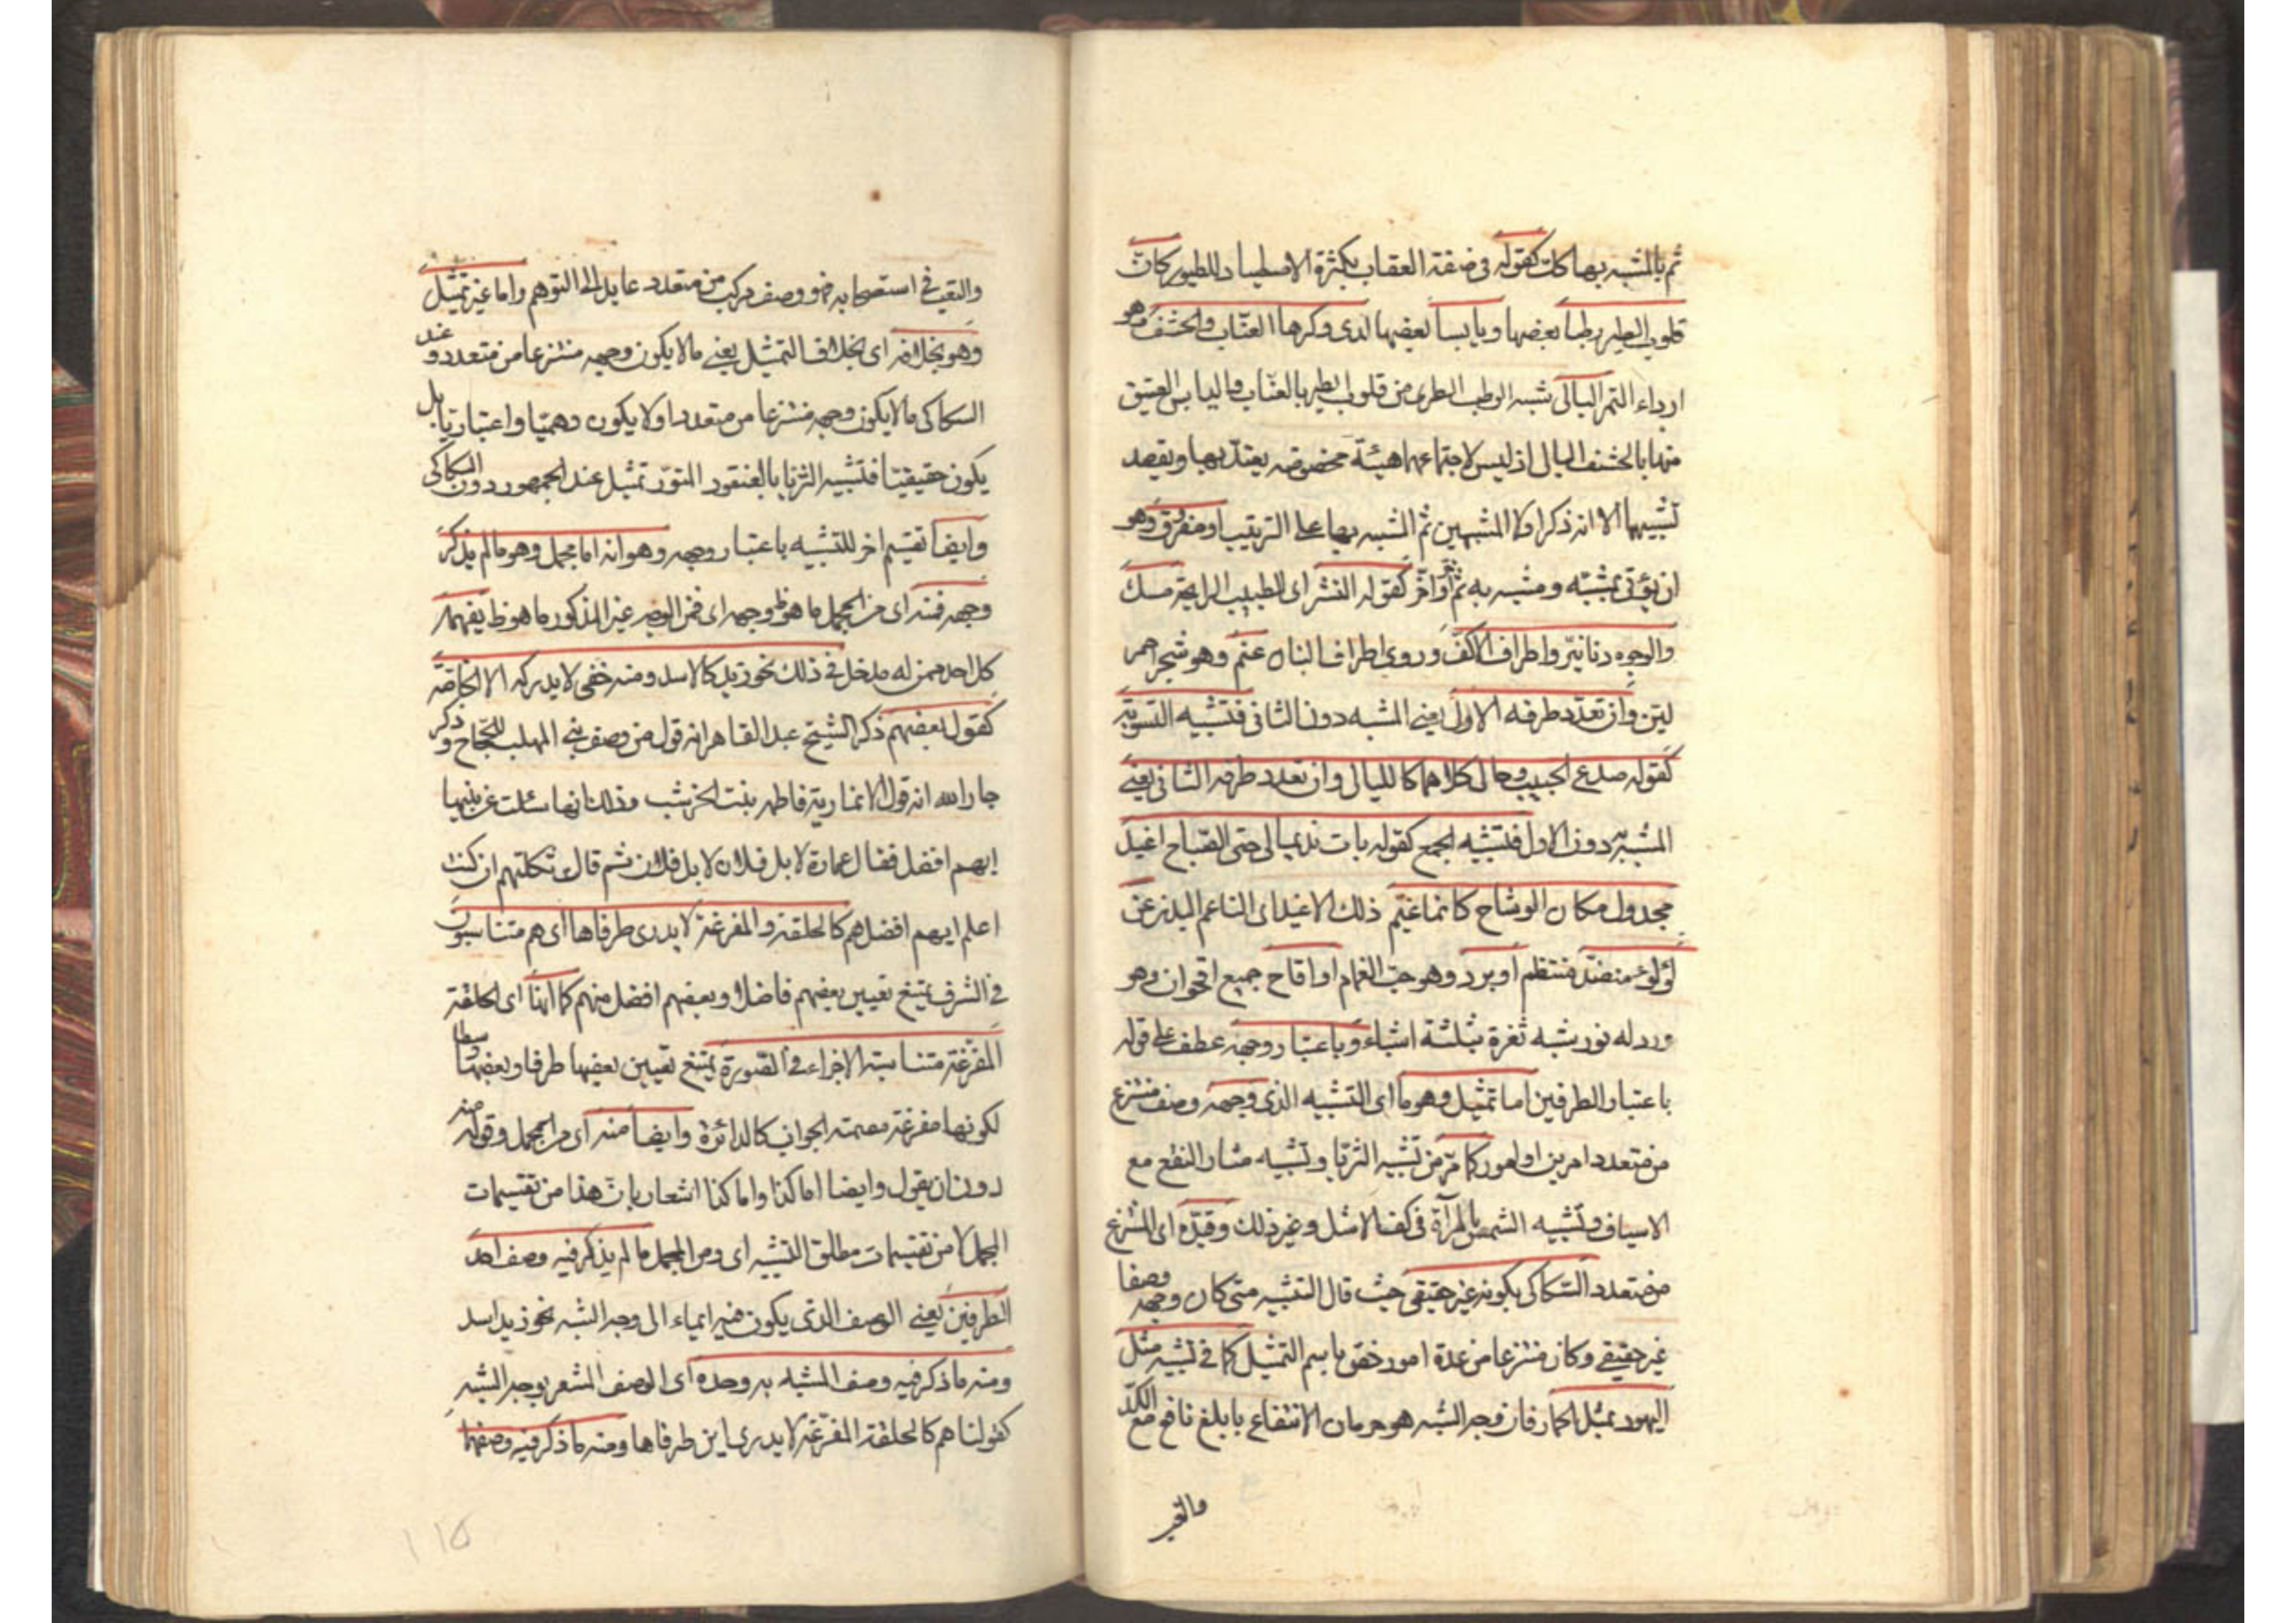 ثم بالمشبه بها كك كقوله فى صفة العقاب بكثرة الاصطياد للطيور كانّ
قلوب الطير رطبا بعضها ويابسا بعضها لدى وكرها العنّاب والحشف وهو
ارداء التمر البالى شبه الرطب الطرى من قلوب الطير بالعنّاب واليابس العتيق
منها بالحشف البالى اذ ليس لاجتماعهما هيئة مخصوصه يعتدّ بها ويقصد
تشبيهها الا انه ذكر اولا المشبهين ثم المشبه بها على الترتيب او مفروق وهو
ان يؤتى بمشبّه ومشبه به ثم آخر وآخر كقوله النشر اى الطيب الرايحة مسك
والوجوه دنانيرّ واطراف الاكفّ وروى اطراف البنان عنم وهو شجر احمر
ليّن وان تعدّد طرفه الاول يعنى المشبه دون الثانى فتشبيه التسوية
كقوله صدغ الحبيب وحالى كلاهما كالليالى وان تعدد طرفه الثانى يعنى
المشبه به دون الاول فتشبيه الجمع كقوله بات نديما لى حتى الصّباح اغيد
مجدول مكان الوشاح كانما يبسم ذلك الاغيد اى الناعم البدن عن
لؤلؤ منضّد منتظم او برد وهو حبّ الغمام او اقاح جمع اقحوان وهو
ورد له نور شبه ثغره بثلثة اشياء وباعتبار وجهه عطف على قوله
باعتبار الطرفين اما تمثيل وهو ما اى التشبيه الذى وجهه وصف منتزع
من متعدد امرين او امور كما مرّ من تشبيه الثريّا وتشبيه مثار النقع مع
الاسياف وتشبيه الشمس بالمرآة فى كف الاشل وغير ذلك وقيّده اى المنتزع
من متعدد السّكاكى بكونه غير حقيقى حيث قال التشبيه متى كان وجهه وصفا
غير حقيقى وكان منتزعا من عدة امور خصّ باسم التمثيل كما فى تشبيه مثل
اليهود بمثل الحمار فان وجه الشبه هو حرمان الانتفاع بابلغ نافع مع الكدّ
والتعب
والتعب فى استصحابه فهو وصف مركب من متعدد عايد الى التوهم واما غير تمثيل
وهو بخلافه اى بخلاف التمثيل يعنى ما لا يكون وجهه منتزعا من متعدد وعند
السكاكى ما لا يكون وجهه منتزعا من متعدد او لا يكون وهميّا واعتباريّا بل
يكون حقيقيّا فتشبيه الثريا بالعنقود المنوّر تمثيل عند الجمهور دون السكاكى
وايضا تقسيم اخر للتشبيه باعتبار وجهه وهو انه اما مجمل وهو ما لم يذكر
وجهه فمنه اى من المجمل ما هو ظ وجهه اى فمن الوجه غير المذكور ما هو ظ يفهمه
كل احد ممن له مدخل فى ذلك نحو زيد كالاسد ومنه خفى لا يدركه الا الخاصّة
كقول بعضهم ذكر الشيخ عبد القاهر انه قول من وصف بنى المهلب للحجّاج وذكر
جار الله انه قول الانمارية فاطمه بنت الخرشب وذلك انها سئلت عن بنيها
ايهم افضل فقال عمارة لا بل فلان لا بل فلان ثم قال ثكلتهم ان كنت
اعلم ايهم افضل هم كالحلقة المفرغة لا يدرى طرفاها اى هم متناسبون
فى الشرف يمتنع تعيين بعضهم فاضلا وبعضهم افضل منهم كما انها اى الحلقة
المفرّغة متناسبة الاجزاء فى الصّورة يمتنع تعيين بعضها طرفا وبعضها وسطا
لكونها مفرغة مصمتة الجوانب كالدائرة وايضا منه اى من المجمل وقوله منه
دون ان يقول وايضا اما كذا واما كذا اشعار بانّ هذا من تقسيمات
المجمل لا من تقسيمات مطلق التشبيه اى ومن المجمل ما لم يذكر فيه وصف احد
الطرفين يعنى الوصف الذى يكون فيه ايماء الى وجه الشبه نحو زيد اسد
ومنه ما ذكر فيه وصف المشبه به وحده اى الوصف المشعر بوجه الشبه
كقولنا هم كالحلقة المفرّغة لا يدرى اين طرفاها ومنه ما ذكر فيه وصفهما